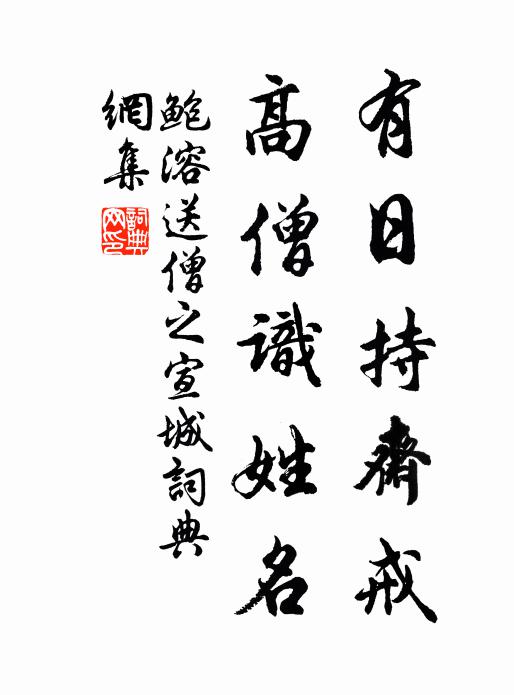 有日持齋戒
高僧識姓名
鮑溶送僧之宣城詞典
網集
詞典網印